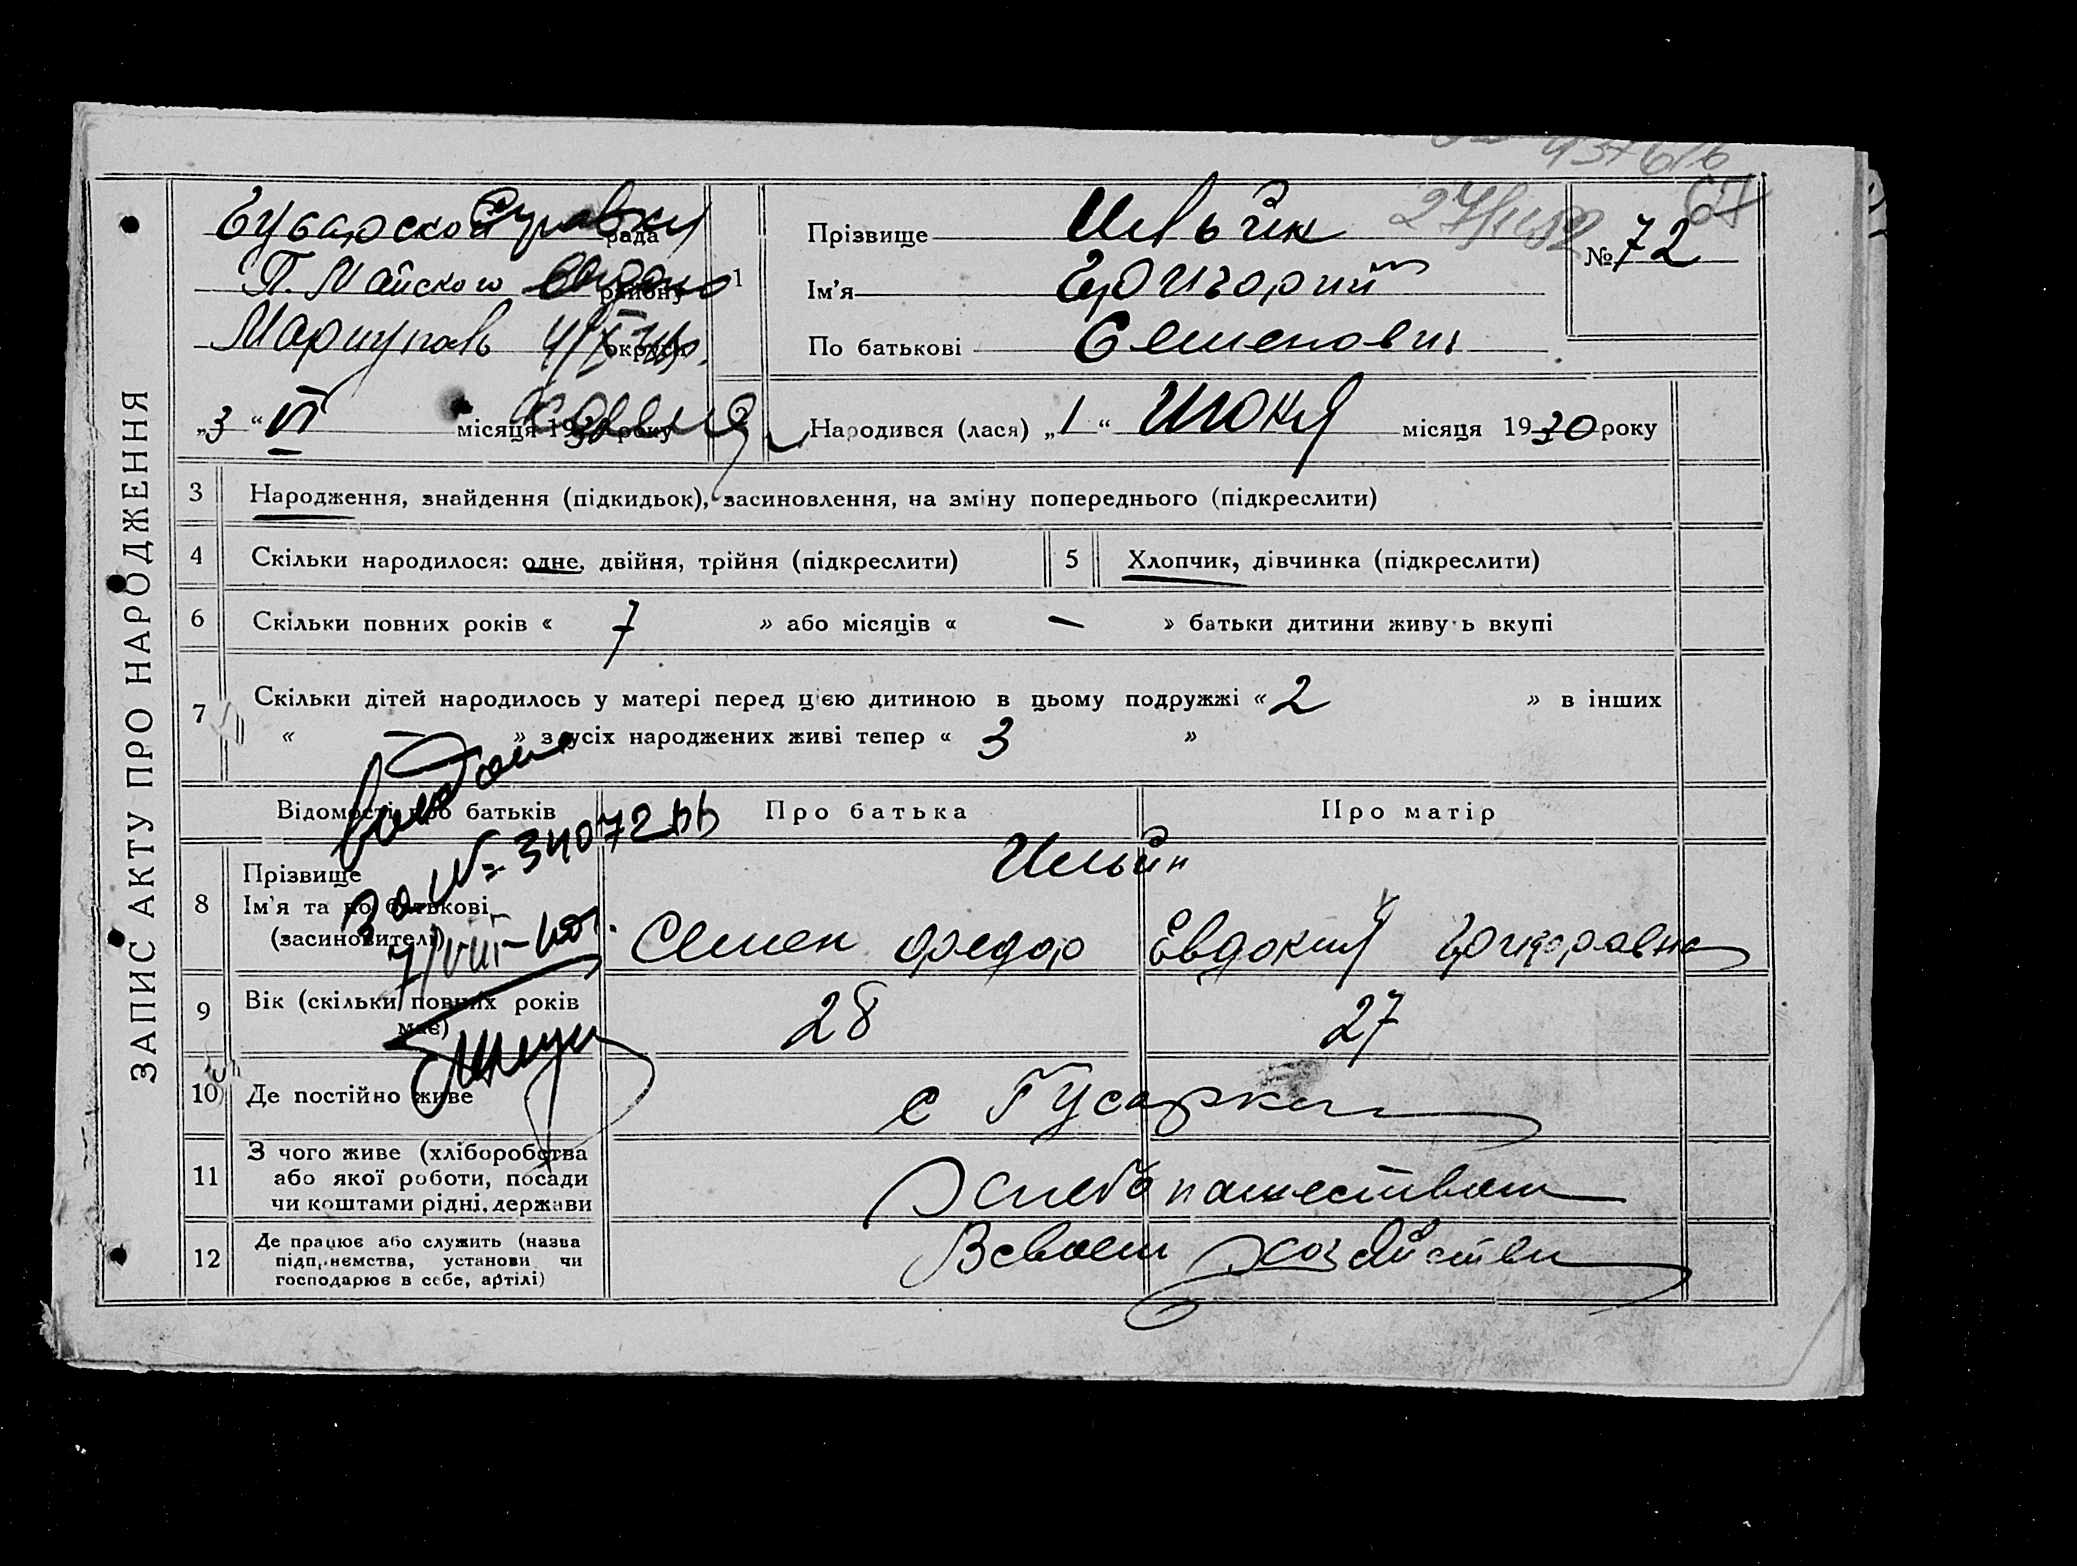 ЗАПИС АКТУ ПРО НАРОДЖЕННЯ
Гусарской рада
П. Майского району
Мариуполь округи
„3“ VI місяця 1930 року
1
Прізвище Ильин
Ім'я Григорий
По батькові Семенович
№ 72
2 Народився (лася) „1“ Июня місяця 1930 року
3 Народження, знайдення (підкидьок), засиновлення, на зміну попереднього (підкреслити)
4 Скільки народилося: одне, двійня, трійня (підкреслити)
5 Хлопчик, дівчинка (підкреслити)
6 Скільки повних років « 7 » або місяців « — » батьки дитини живуть вкупі
7 Скільки дітей народилось у матері перед цією дитиною в цьому подружжі « 2 » в інших
« — » з усіх народжених живі тепер « 3 »
Відомості про батьків Про батька Про матір
за № 34072
8 Прізвище Ильин
Ім'я та по батькові
(засновителі) Семен Федор Евдокия Григоровна
9 Вік (скільки повних років має) 28 27
10 Де постійно живе с Гусарка
11 З чого живе (хліборобства
або якої роботи, посади
чи коштами рідні, держави Хлебопашеством
12 Де працює або служить (назва
підприємства, установи чи
господарює в себе, артілі) В своем хозяйстве